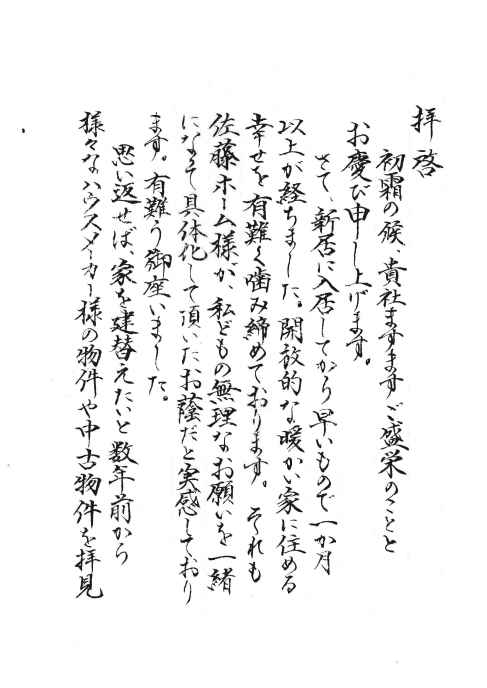 拝啓
初霜の候、貴社ますますご盛栄のことと
お慶び申し上げます。
さて、新居に入居してから早いもので一か月
以上が経ちました。開放的な暖かい家に住める
幸せを有難く噛み締めております。それも
佐藤ホーム様が、私どもの無理なお願いを一緒
になって具体化して頂いたお蔭だと実感しており
ます。有難う御座いました。
思い返せば、家を建替えたいと数年前から
様々なハウスメーカー様の物件や中古物件を拝見